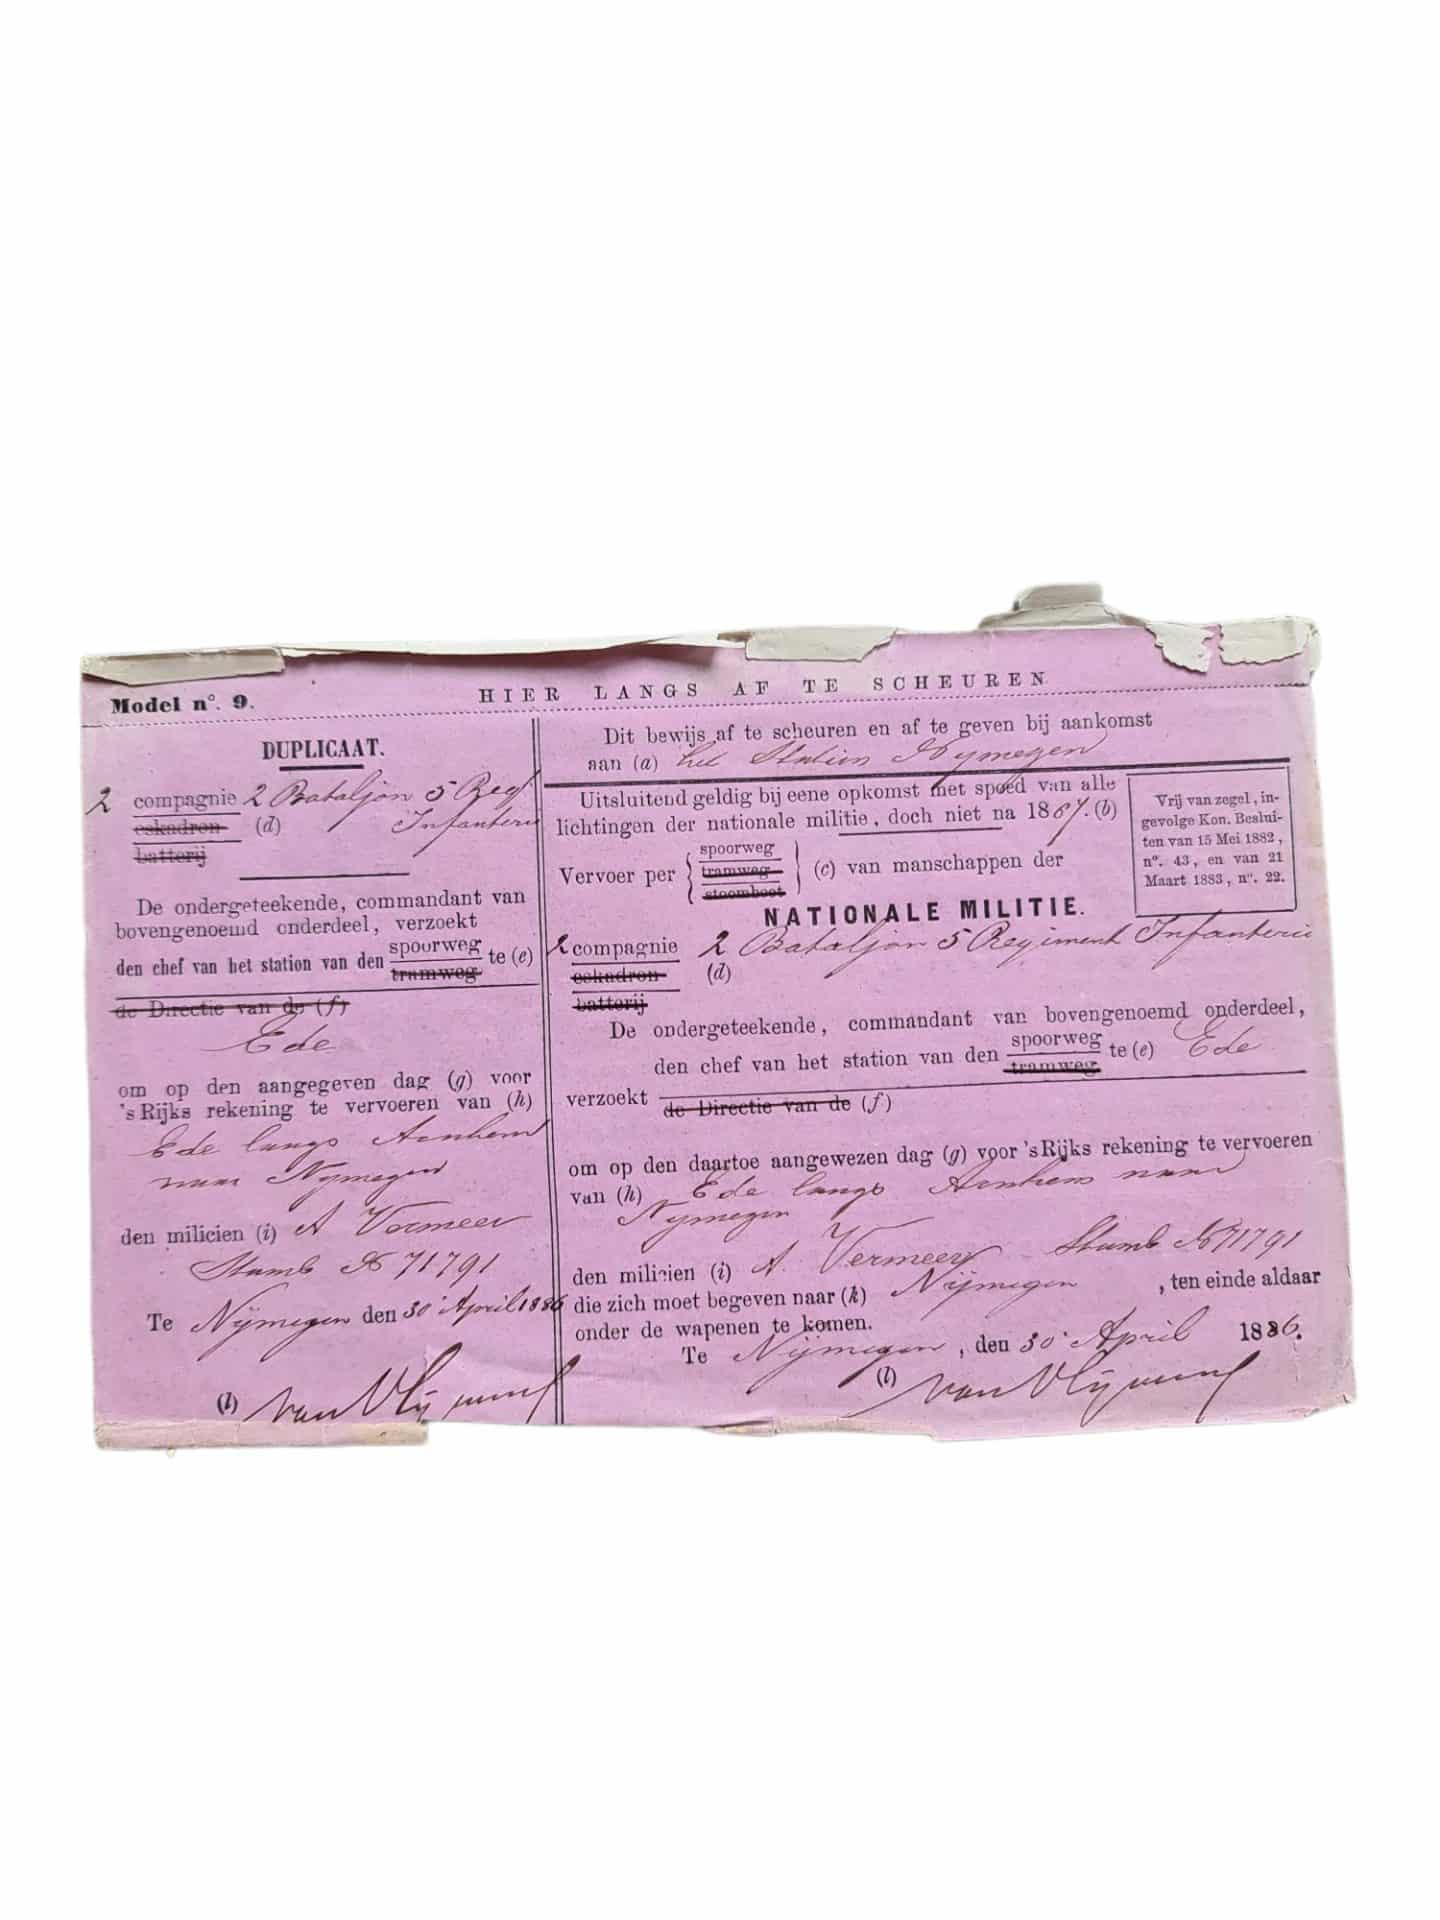 Model n°. 9.
HIER LANGS AF TE SCHEUREN
DUPLICAAT.
2 compagnie 2 Bataljon 5 Reg
eskadron (d) Infanterie
batterij
De ondergeteekende, commandant van
bovengenoemd onderdeel, verzoekt
den chef van het station van den spoorweg te (e)
tramweg
de Directie van de (f)
Ede
om op den aangegeven dag (g) voor
's Rijks rekening te vervoeren van (h)
Ede langs Arnhem
naar Nymegen
den milicien (i) A Vermeer
Stamb No 71791
Te Nijmegen den 30 April 1886
(l) van Vlijmen
Dit bewijs af te scheuren en af te geven bij aankomst
aan (a) het Station Nymegen
Uitsluitend geldig bij eene opkomst met spoed van alle
lichtingen der nationale militie, doch niet na 1887. (b)
Vrij van zegel, in-
gevolge Kon. Beslui-
ten van 15 Mei 1882,
n°. 43, en van 21
Maart 1883, n°. 22.
spoorweg
Vervoer per tramweg (c) van manschappen der
stoomboot
NATIONALE MILITIE.
2 compagnie 2 Bataljon 5 Regiment Infanterie
eskadron (d)
batterij
De ondergeteekende, commandant van bovengenoemd onderdeel,
den chef van het station van den spoorweg te (e) Ede
tramweg
verzoekt
de Directie van de (f)
om op den daartoe aangewezen dag (g) voor 's Rijks rekening te vervoeren
van (h) Ede langs Arnhem naar
Nymegen
den milicien (i) A. Vermeer Stamb No 71791
die zich moet begeven naar (k) Nijmegen, ten einde aldaar
onder de wapenen te komen.
Te Nijmegen, den 30 April 1886.
(l) van Vlijmen